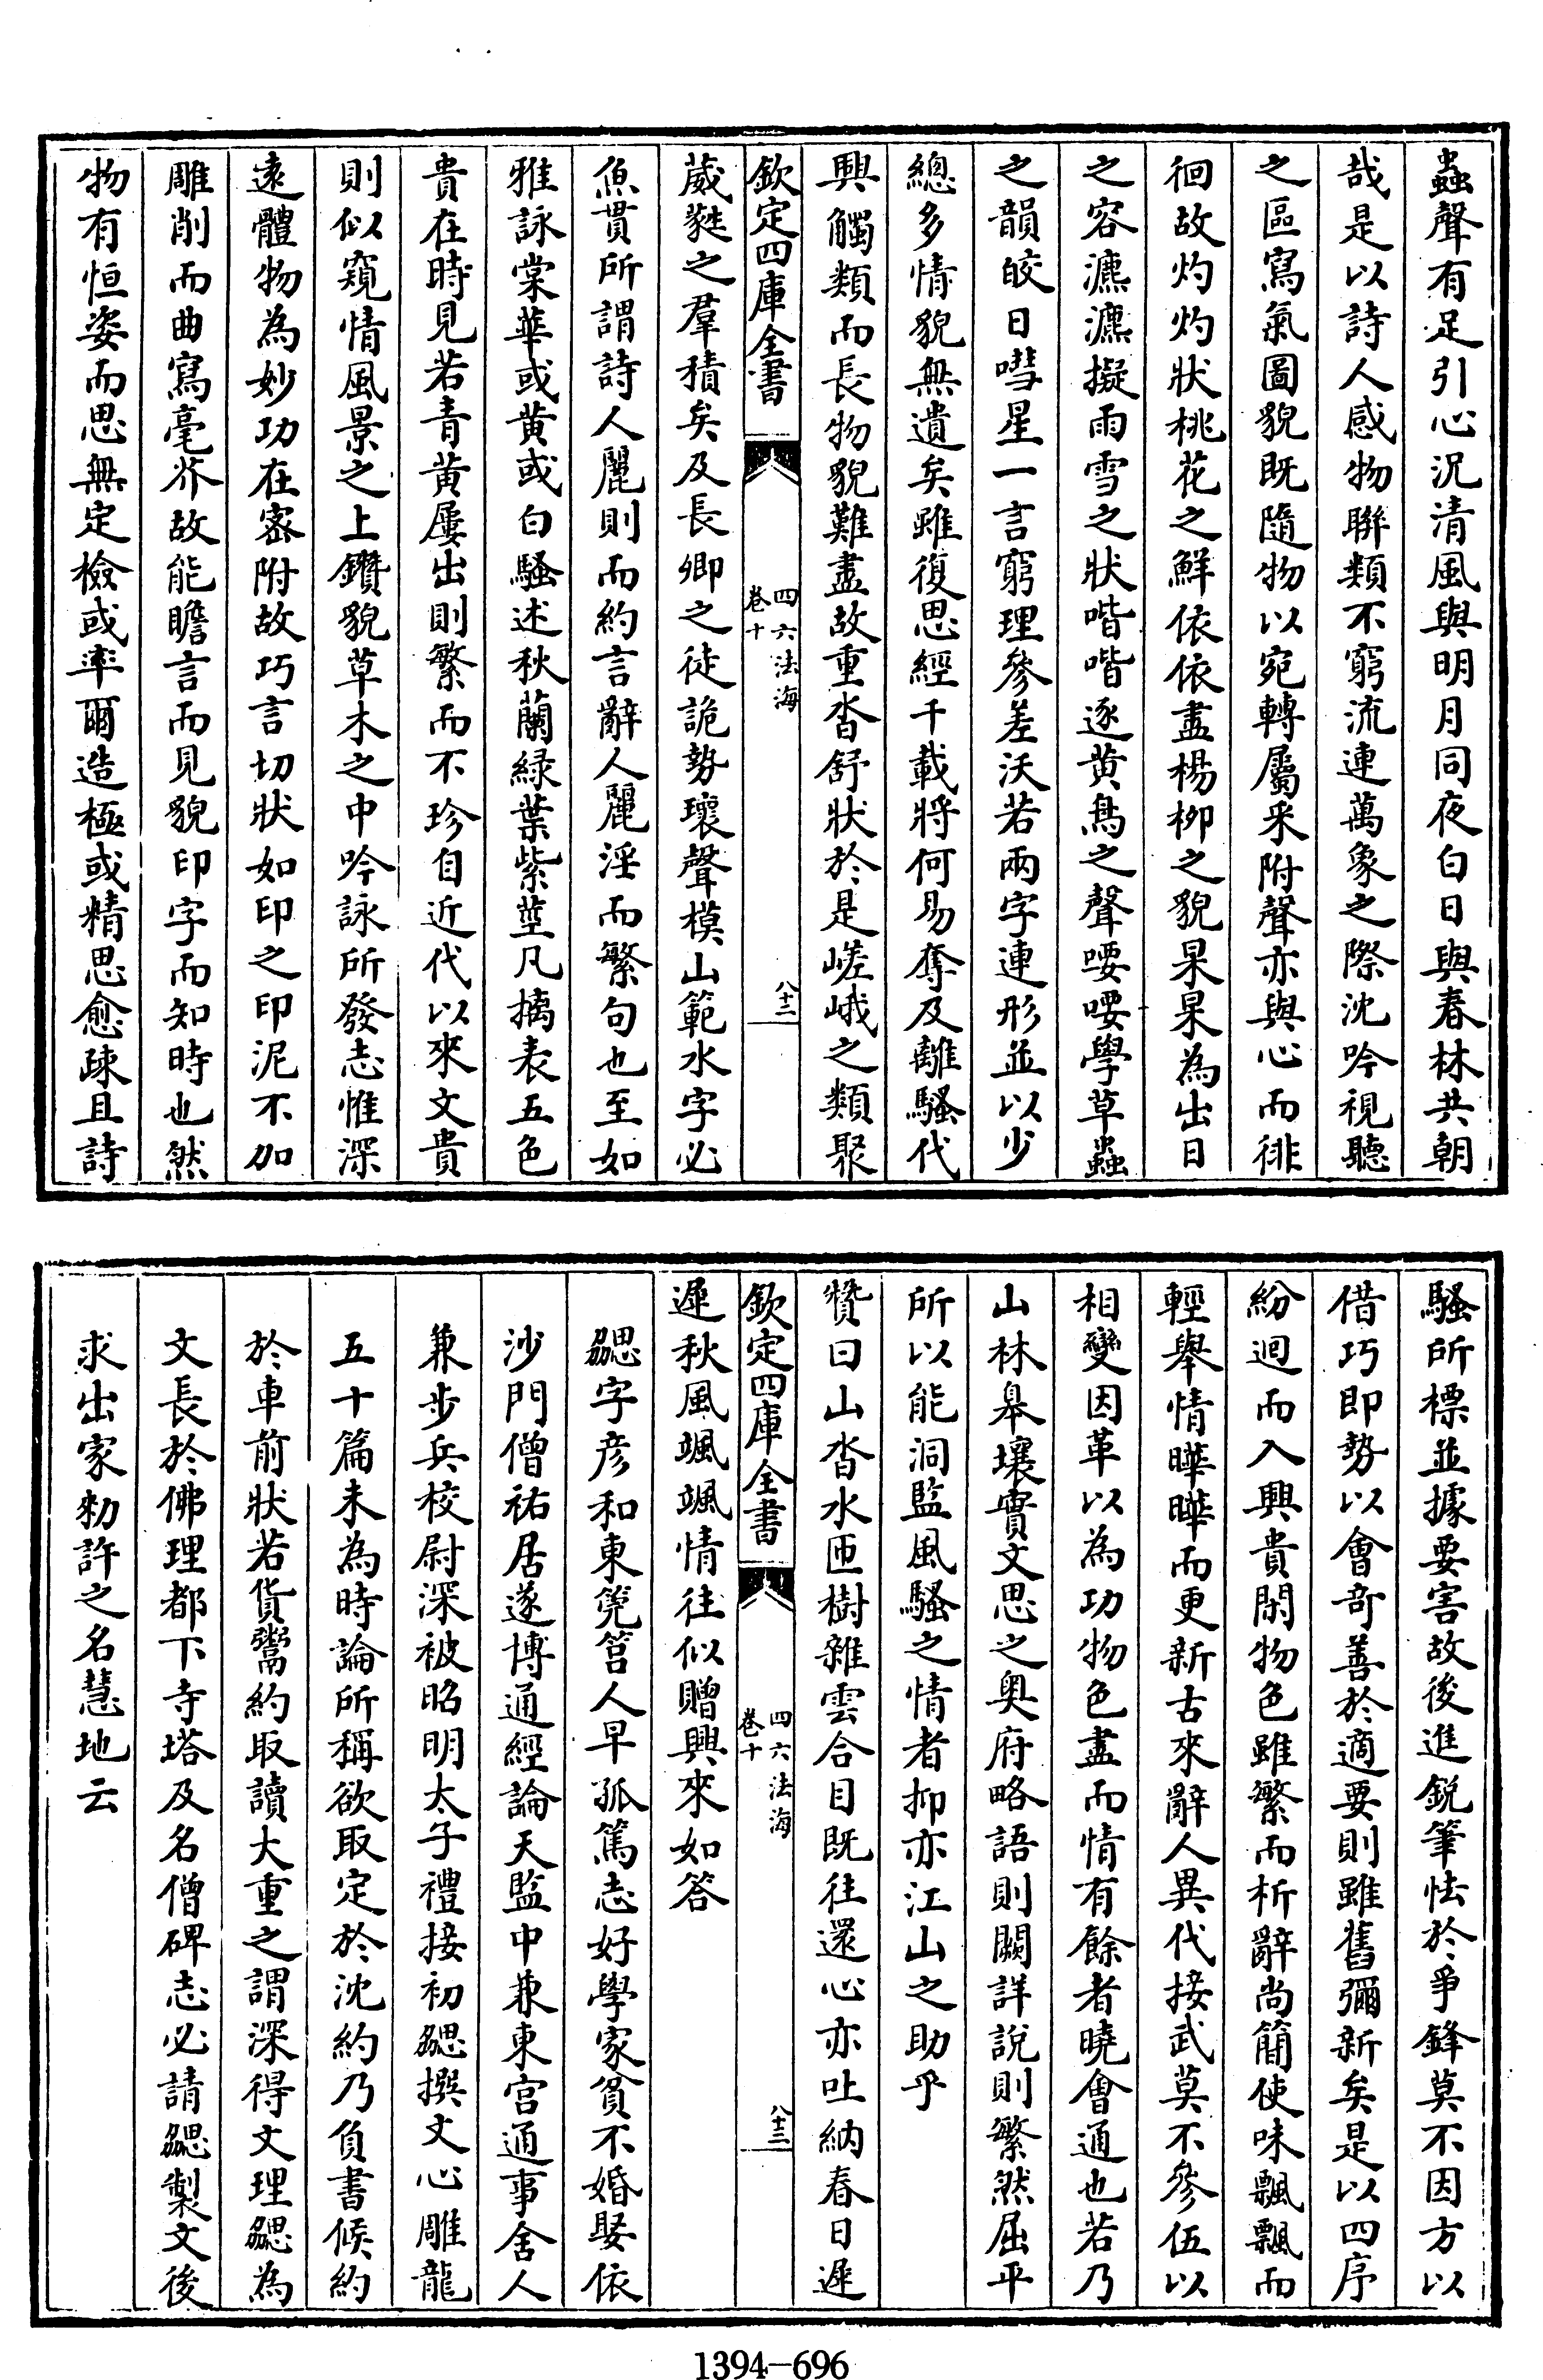 蟲聲有足引心況清風與明月同夜白日與春林共朝
哉是以詩人感物聨類不窮流連萬象之際沈吟視聽
之區寫氣圖貌既隨物以宛轉屬采附聲亦與心而徘
徊故灼灼狀桃花之鮮依依盡楊栁之貌杲杲為出日
之容瀌瀌擬雨雪之狀喈喈逐黄鳥之聲喓喓學草蟲
之韻皎日嘒星一言窮理參差沃若兩字連形並以少
總多情貌無遺矣雖復思經千載將何易奪及離騷代
興觸類而長物貌難盡故重沓舒狀於是嵯峨之類聚
欽定四庫全書
四六法海
卷十
八十二
葳蕤之羣積矣及長卿之徒詭勢瓌聲模山範水字必
魚貫所謂詩人麗則而約言辭人麗淫而繁句也至如
雅詠棠華或黄或白騷述秋蘭緑葉紫莖凡摛表五色
貴在時見若青黄屢出則繁而不珍自近代以來文貴
則似窺情風景之上鑽貌草木之中吟詠所發志惟深
遠體物為妙功在密附故巧言切狀如印之印泥不加
雕削而曲寫毫芥故能瞻言而見貌印字而知時也然
物有恒姿而思無定檢或率爾造極或精思愈疎且詩
騷所標並據要害故後進鋭筆怯於爭鋒莫不因方以
借巧即勢以會竒善於適要則雖舊彌新矣是以四序
紛迴而入興貴閑物色雖繁而析辭尚簡使味飄飄而
輕舉情曄曄而更新古來辭人異代接武莫不參伍以
相變因革以為功物色盡而情有餘者曉會通也若乃
山林皋壤實文思之奥府略語則闕詳說則繁然屈平
所以能洞監風騷之情者抑亦江山之助乎
贊曰山沓水匝樹雜雲合目既往還心亦吐納春日遲
欽定四庫全書
四六法海
卷十
八十三
遲秋風颯颯情往似贈興來如答
勰字彦和東筦莒人早孤篤志好學家貧不婚娶依
沙門僧祐居遂博通經論天監中兼東宫通事舍人
兼步兵校尉深被昭明太子禮接初勰撰文心雕龍
五十篇未為時論所稱欲取定於沈約乃負書候約
於車前狀若貨鬻約取讀大重之謂深得文理勰為
文長於佛理都下寺塔及名僧碑志必請勰製文後
求出家勑許之名慧地云
1394-696